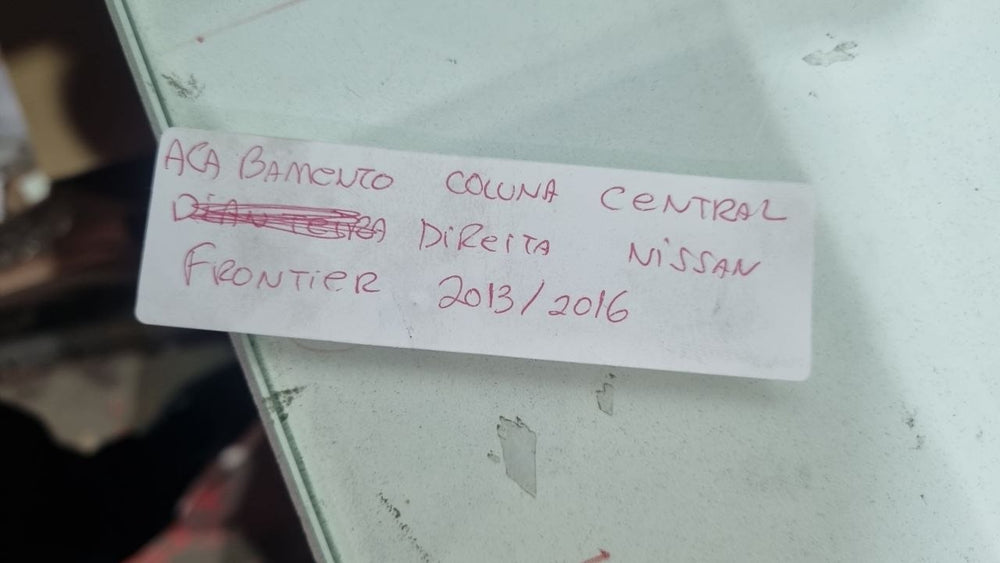 ACABAMENTO COLUNA CENTRAL
DIREITA NISSAN
FRONTIER 2013/2016